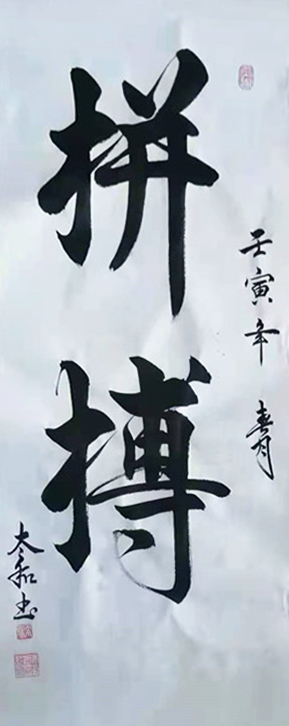 壬寅年 春月
拼搏
太和书